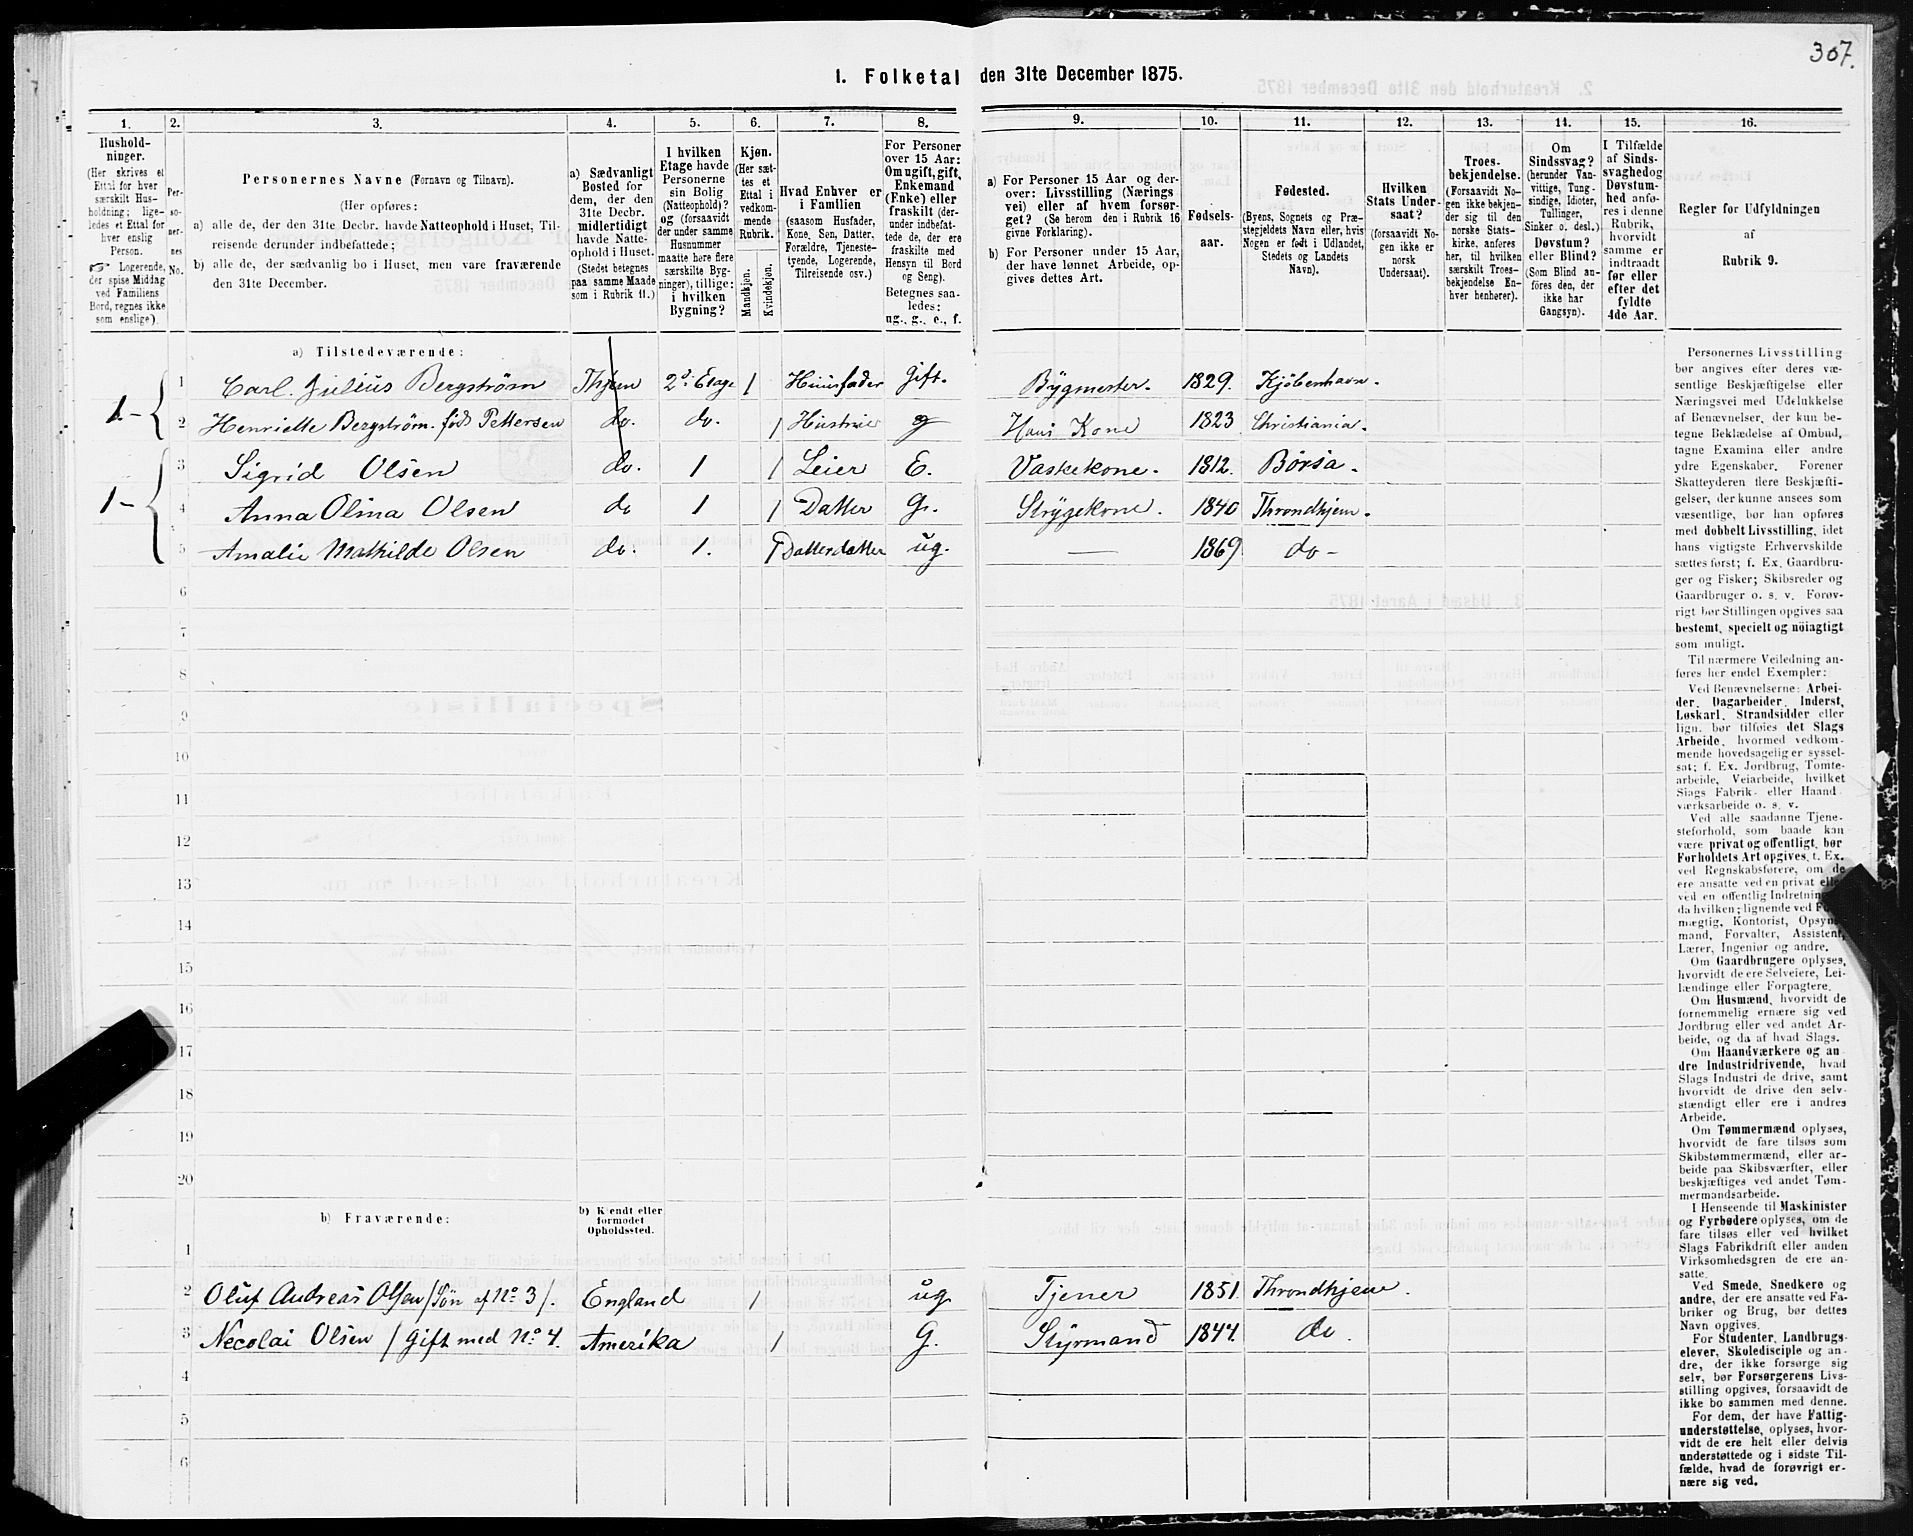 307.
1. Folketal den 31te December 1875.
1. 2. 3. 4. 5. 6. 7. 8. 9. 10. 11. 12. 13. 14. 15. 16.
Hushold-
ninger.
(Her skrives et
Ettal for hver
særskilt Hus-
holdning; lige-
ledes et Ettal for
hver enslig
Person.
☞ Logerende,
der spise Middag
ved Familiens
Bord, regnes ikke
som enslige).
Per-
so-
ner-
nes
No.
Personernes Navne (Fornavn og Tilnavn).
(Her opføres:
a) alle de, der den 31te Decbr. havde Natteophold i Huset, Til-
reisende derunder indbefattede;
b) alle de, der sædvanlig bo i Huset, men vare fraværende
den 31te December.
a) Sædvanligt
Bosted for
dem, der den
31te Decbr.
midlertidigt
havde Natte-
ophold i Huset.
(Stedet betegnes
paa samme Maade
som i Rubrik 11.)
I hvilken
Etage havde
Personerne
sin Bolig
(Natteophold)?
og (forsaavidt
der under samme
Husnummer
maatte høre flere
særskilte Byg-
ninger), tillige:
i hvilken
Bygning?
Kjøn.
(Her sæt-
tes et
Ettal i
vedkom-
mende
Rubrik.
Mandkjøn.
Kvindekjøn.
Hvad Enhver er
i Familien
(saasom Husfader,
Kone, Søn, Datter,
Forældre, Tjeneste-
tyende, Logerende,
Tilreisende osv.)
For Personer
over 15 Aar:
Om ugift, gift,
Enkemand
(Enke) eller
fraskilt (der-
under indbefat-
tede de, der ere
fraskilte med
Hensyn til Bord
og Seng).
Betegnes saa-
ledes:
ug., g., e., f.
a) For Personer 15 Aar og der-
over: Livsstilling (Nærings
vei) eller af hvem forsør-
get? (Se herom den i Rubrik 16
givne Forklaring).
b) For Personer under 15 Aar,
der have lønnet Arbeide, op-
gives dettes Art.
Fødsels-
aar.
Fødested.
(Byens, Sognets og Præ-
stegjeldets Navn eller, hvis
Nogen er født i Udlandet,
Stedets og Landets
Navn).
Hvilken
Stats Under-
saat?
(forsaavidt No-
gen ikke er
norsk
Undersaat).
Troes-
bekjendelse.
(Forsaavidt No-
gen ikke bekjen-
der sig til den
norske Stats-
kirke, anføres
her, til hvilken
særskilt Troes-
bekjendelse En-
hver henhører).
Om
Sindssvag?
(herunder Van-
vittige, Tung-
sindige, Idioter,
Tullinger,
Sinker o. desl.)
Døvstum?
eller Blind?
(Som Blind an-
føres den, der
ikke har
Gangsyn).
I Tilfælde
af Sinds-
svaghed og
Døvstum-
hed anfø-
res i denne
Rubrik,
hvorvidt
samme er
indtraadt
før eller
efter det
fyldte
4de Aar.
Regler for Udfyldningen
af
Rubrik 9.
a) Tilstedeværende:
1- 1 Carl. Julius Bergstrøm Thjem 2d. Etage 1 Huusfader Gift. Bygmester. 1829. Kjöbenhavn.
2 Henriette Bergstrøm. föd Pettersen do. do. 1 Hustrue g Hans Kone 1823 Christiania.
1- 3 Sigrid Olsen do. 1 1 Leier E. Vaskekone. 1812. Börsa.
4 Anna Olina Olsen do 1 1 Datter G. Strygekone. 1840 Throndhjem.
5 Amalie Mathilde Olsen do. 1. 1 Datterdatter ug. — 1869 do -
6
7
8
9
10
11
12
13
14
15
16
17
18
19
20
b) Fraværende:
b) Kjendt eller
formodet
Opholdssted.
1
2 Oluf Andreas Olsen /Sön af No 3/. England 1 ug Tjener 1851. Throndhjem.
3 Necolai Olsen / Gift med No 4. Amerika 1 G. Styrmand 1844. do.
4
5
6
Personernes Livsstilling
bør angives efter deres væ-
sentlige Beskjæftigelse eller
Næringsvei med Udelukkelse
af Benævnelser, der kun be-
tegne Beklædelse af Ombud,
tagne Examina eller andre
ydre Egenskaber. Forener
Skatteyderen flere Beskjæfti-
gelser, der kunne ansees som
væsentlige, bør han opføres
med dobbelt Livsstilling, idet
hans vigtigste Erhvervskilde
sættes først; f. Ex. Gaardbru-
ger og Fisker; Skibsreder og
Gaardbruger o. s. v. Forøv-
rigt bør Stillingen opgives saa
bestemt, specielt og nöiagtigt
som muligt.
Til nærmere Veiledning an-
føres her endel Exempler:
Ved Benævnelserne: Arbei-
der, Dagarbeider, Inderst,
Løskarl, Strandsidder eller
lign. bør tilføies det Slags
Arbeide, hvormed vedkom-
mende hovedsagelig er syssel-
sat; f. Ex. Jordbrug, Tomte-
arbeide, Veiarbeide, hvilket
Slags Fabrik- eller Haand-
værksarbeide o. s. v.
Ved alle saadanne Tjene-
steforhold, som baade kan
være privat og offentligt, bør
Forholdets Art opgives, t. Ex.
ved Regnskabsførere, om de
ere ansatte ved en privat eller
ved en offentlig Indretning
da hvilken; lignende ved
mægtig, Kontorist,
mand, Forvalter, Assistent,
Lærer, Ingeniør og andre.
Om Gaardbrugere oplyses,
hvorvidt de ere Selveiere, Lei-
lændinge eller Forpagtere.
Om Husmænd, hvorvidt de
fornemmelig ernære sig ved
Jordbrug eller ved andet Ar-
beide, og da af hvad Slags.
Om Haandværkere og an
dre Industridrivende, hvad
Slags Industri de drive, samt
hvorvidt de drive den selv-
stændigt eller ere i andres
Arbeide.
Om Tømmermænd oplyses,
hvorvidt de fare tilsøs som
Skibstømmermænd, eller ar-
beide paa Skibsværfter, eller
beskjæftiges ved andet Tøm-
mermandsarbeide.
I Henseende til Maskinister
og Fyrbødere oplyses, om de
fare tilsøs eller ved hvilket
Slags Fabrikdrift eller anden
Virksomhedsgren de ere an-
satte.
Ved Smede, Snedkere og
andre, der ere ansatte ved Fa-
briker og Brug, bør dettes
Navn opgives.
For Studenter, Landbrugs-
elever, Skoledisciple og an-
dre, der ikke forsørge sig
selv, bør Forsørgerens Livs-
stilling opgives, forsaavidt de
ikke bo sammen med denne.
For dem, der have Fattig-
understøttelse, oplyses, hvor-
vidt de ere helt eller delvis
understøttede og i sidste Til-
fælde, hvad de forøvrigt er-
nære sig ved.